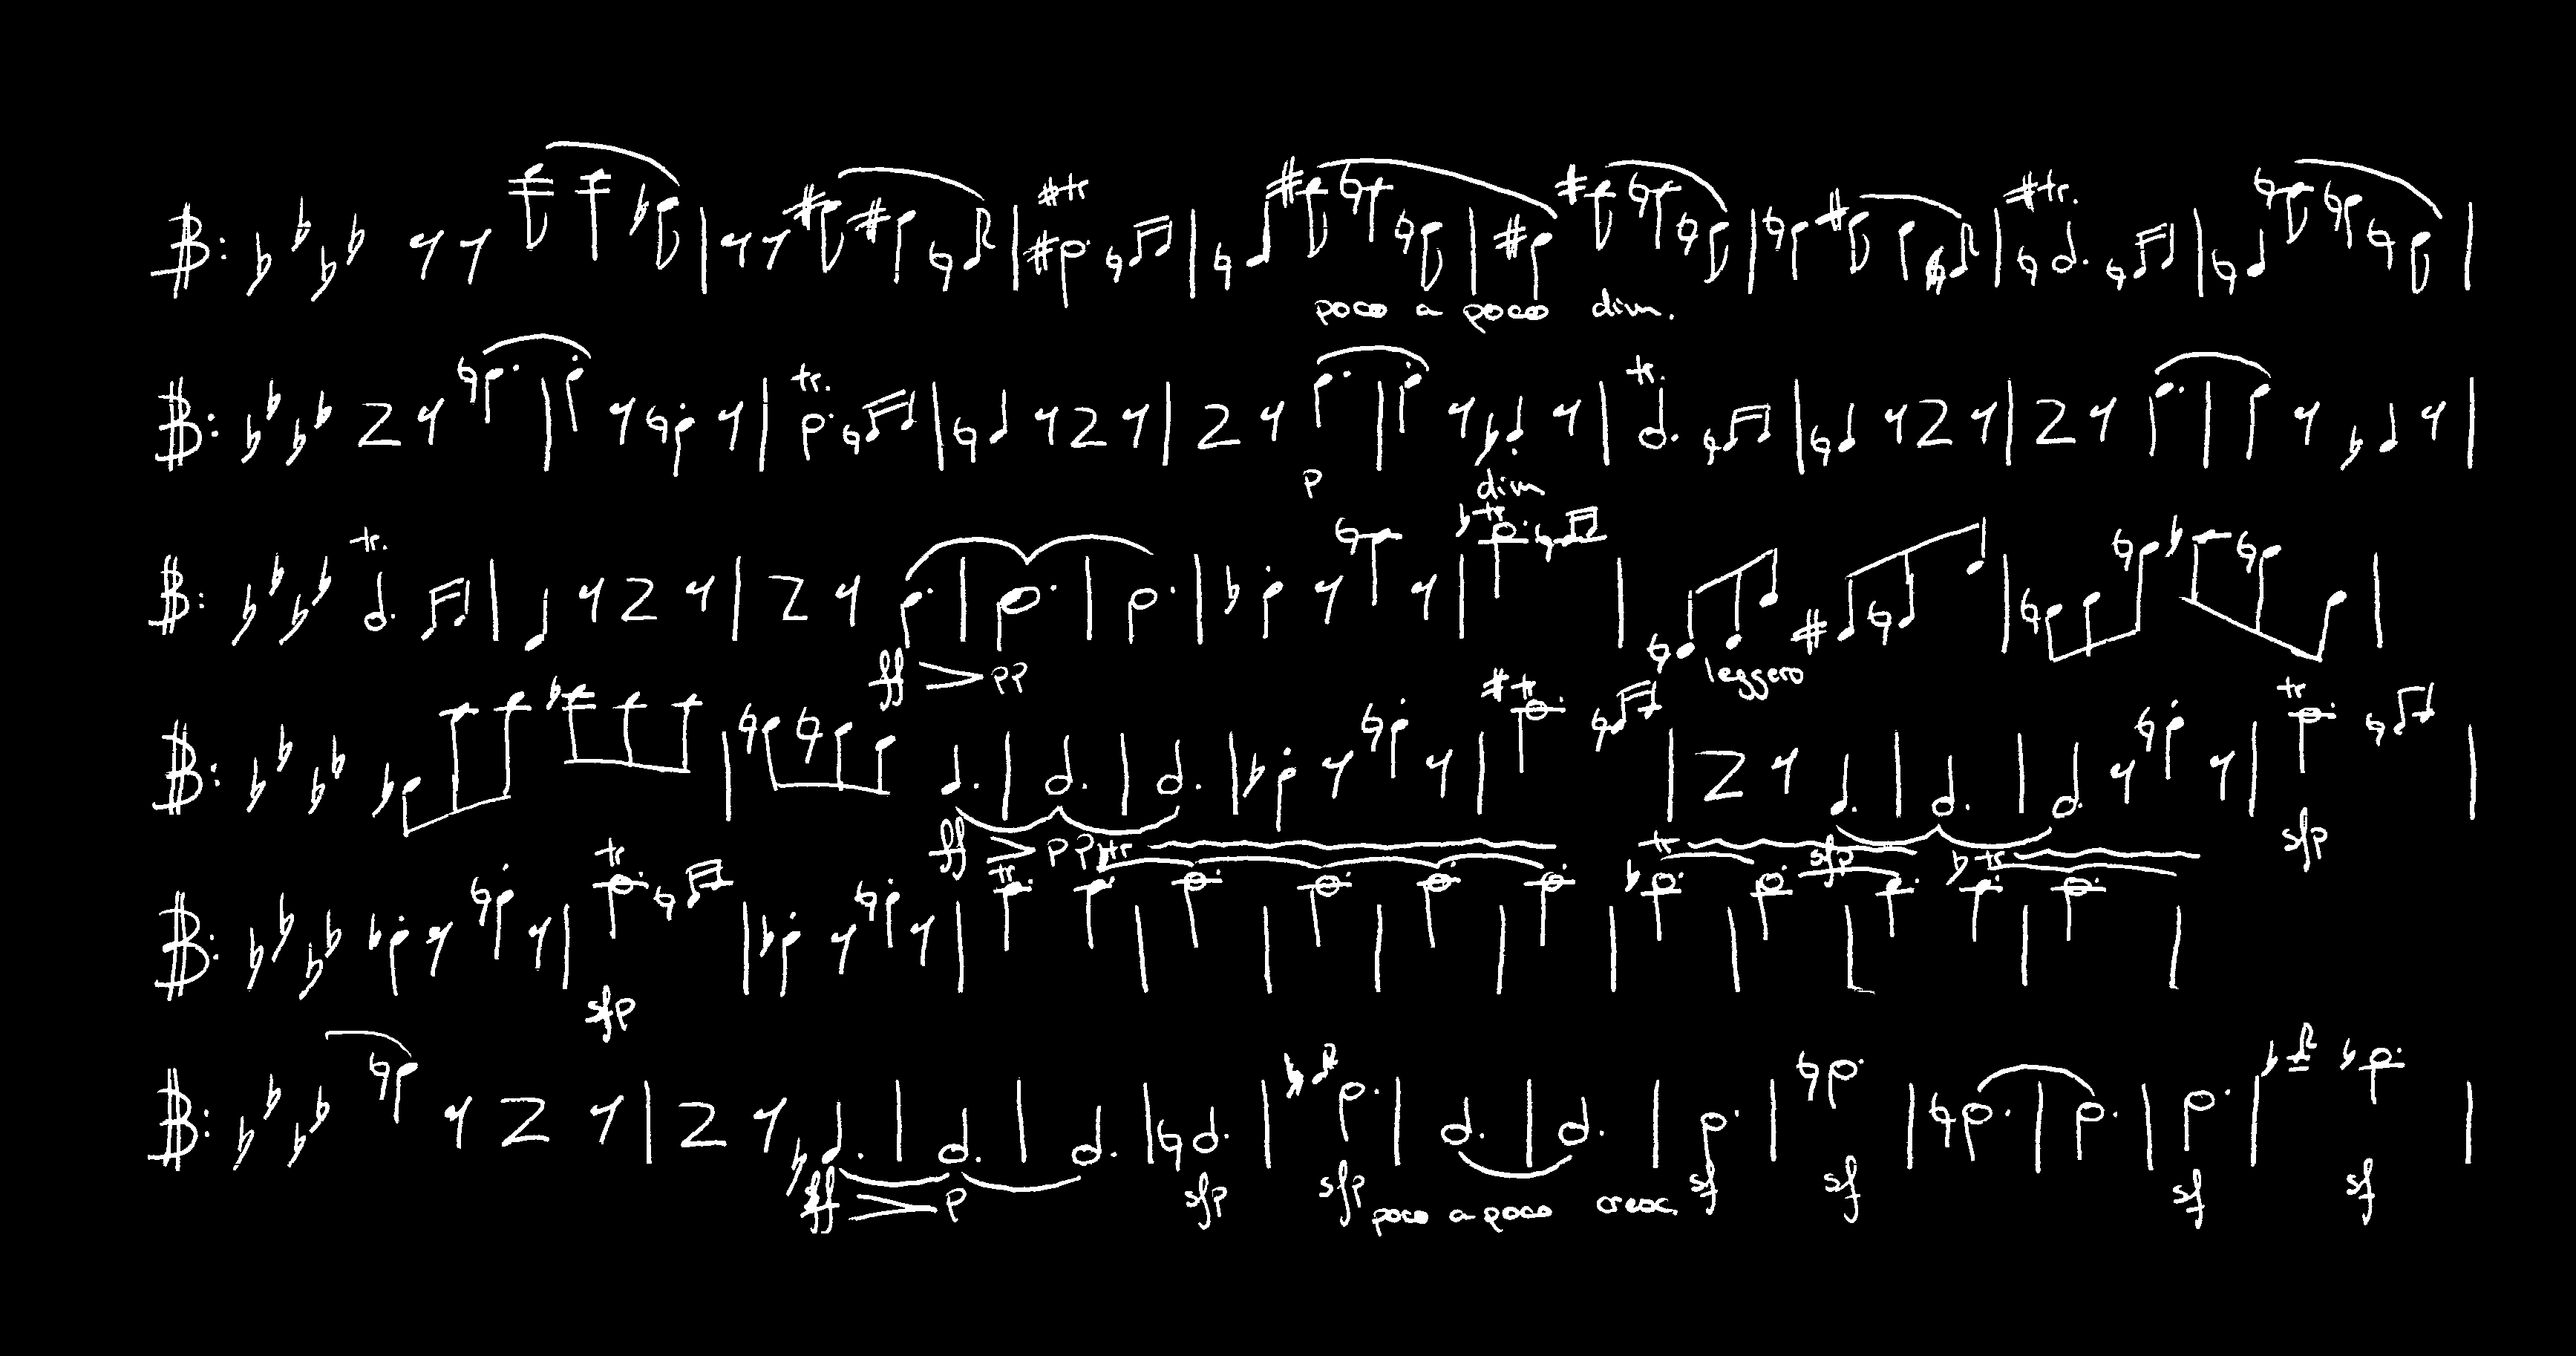 tr tr.
poco a poco dim.
tr. tr.
p dim
tr. tr
ff pp leggero
tr tr
ff pp sfp
tr tr tr tr sfp tr
sfp
ff p sfp sfp poco a poco cresc. sf sf sf sf